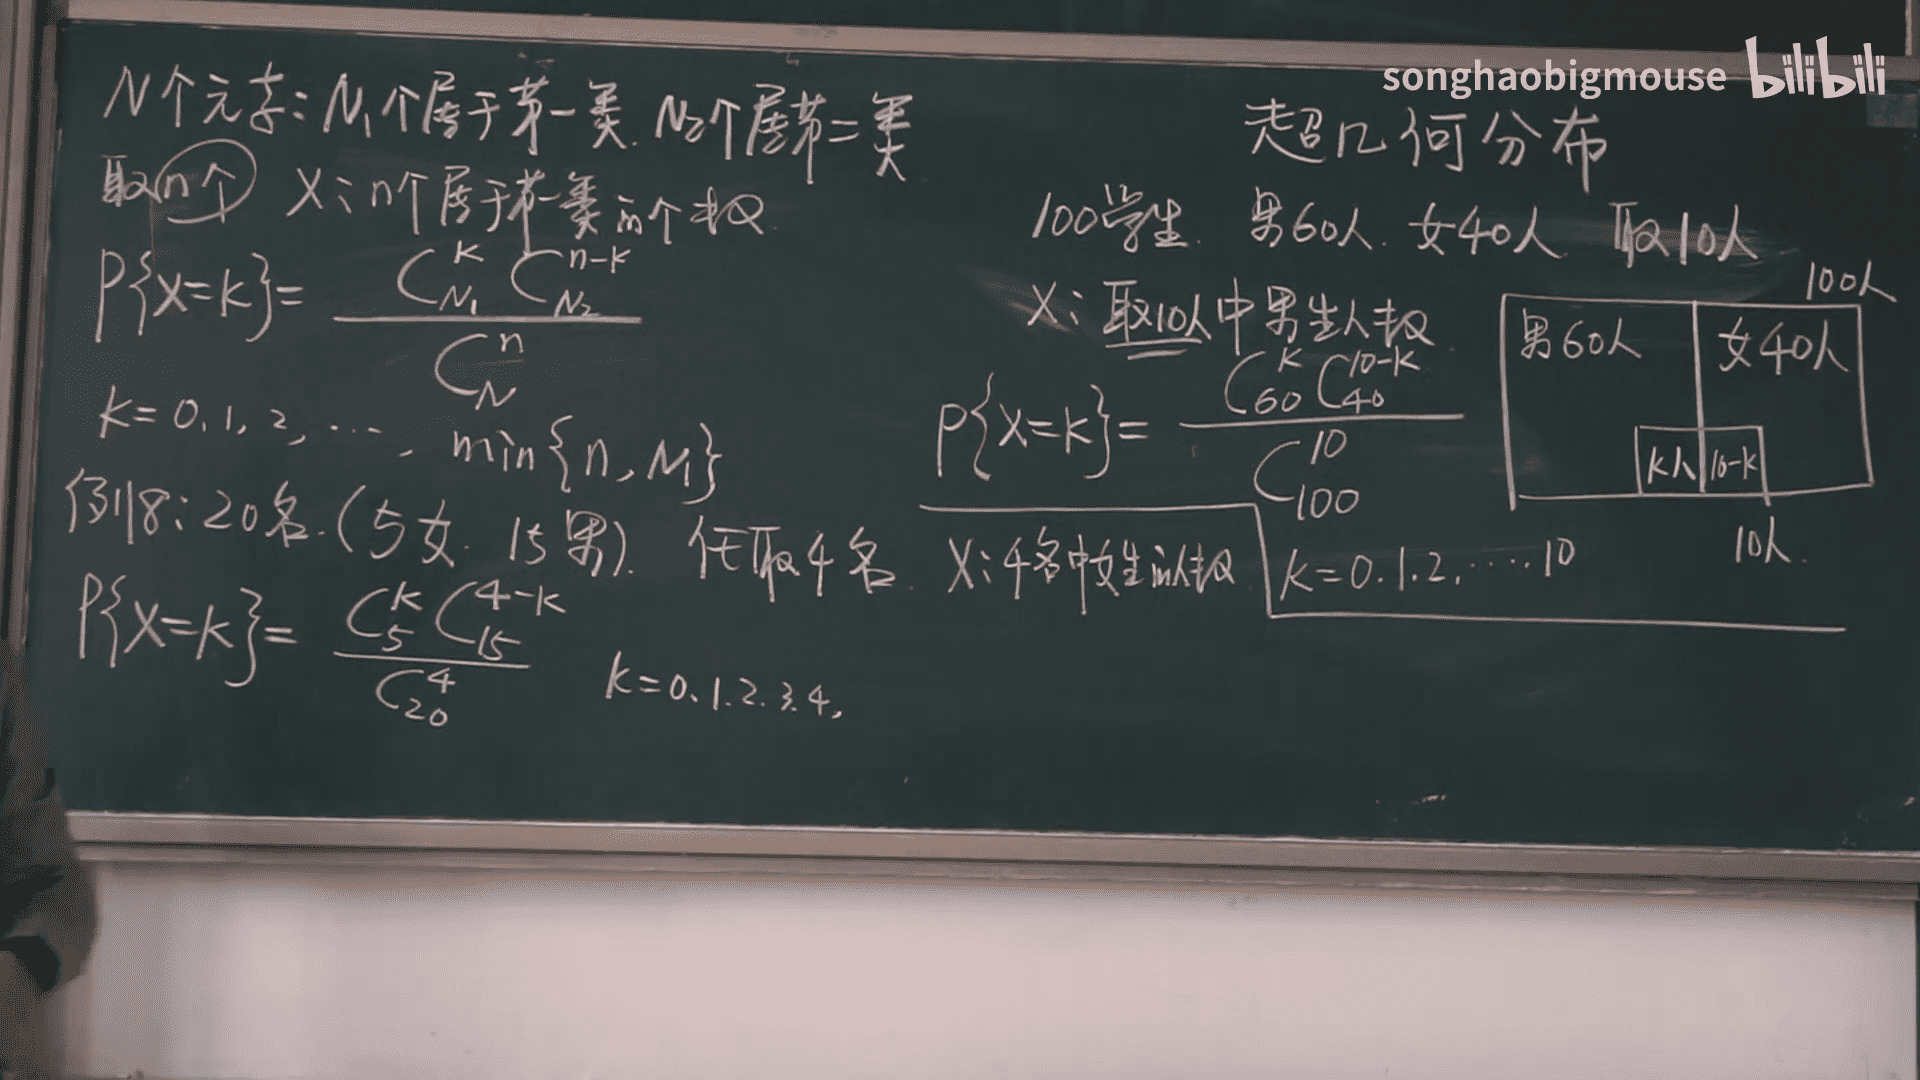 songhaobigmouse bilibili
N个元素:N₁个属于第一类. N₂个属第二类
取n个 X:n个属于第一类的个数
P{X=k}= C_{N₁}^{k} C_{N₂}^{n-k} / C_{N}^{n}
k=0,1,2,…,min{n,N₁}
例8:20名.(5女.15男).任取4名. X:4名中女生的人数
P{X=k}= C_{5}^{k} C_{15}^{4-k} / C_{20}^{4} k=0.1.2.3.4,
超几何分布
100学生. 男60人. 女40人 取10人
X:取10人中男生人数
P{X=k}= C_{60}^{k} C_{40}^{10-k} / C_{100}^{10}
k=0.1.2.…..10
100人
男60人 女40人
k人 10-k
10人.